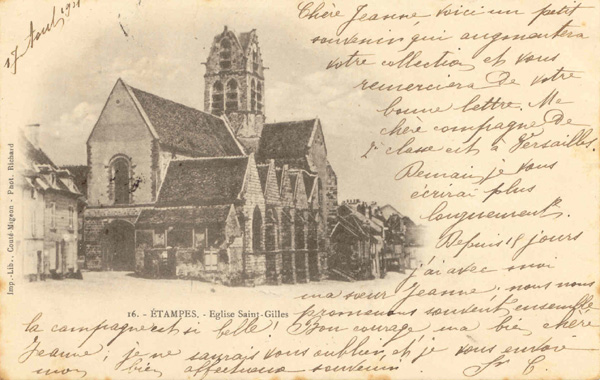 17 Août 1901
Chère Jeanne voici un petit
souvenir qui augmentera
votre collection et vous
remerciera de votre
bonne lettre. Ma
chère compagne de
2e classe est à Versailles.
Demain je vous
écrirai plus
longuement.
Depuis 15 jours
j'ai avec moi
ma sœur Jeanne; nous nous
promenons souvent ensemble
la campagne est si belle! Bon courage ma bien chère
Jeanne; je ne saurais vous oublier, et je vous envoie
mon bien affectueux souvenir.
Imp.-Lib., Couté-Mignon - Phot. Richard
16. - ÉTAMPES. - Eglise Saint-Gilles